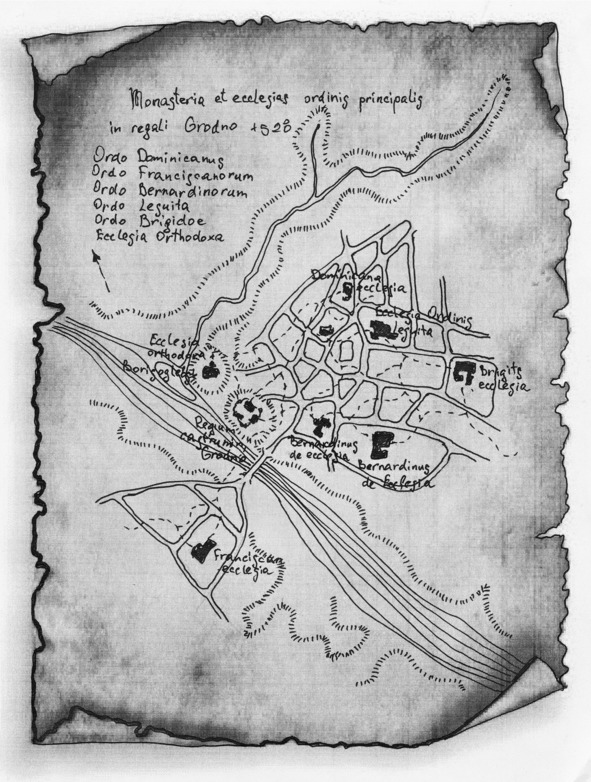 Monasteria et ecclesias ordinis principalis
in regali Grodno
Ordo Dominicanus
Ordo Franciscanorum
Ordo Bernardinorum
Ordo Leguita
Ordo Brigidoe
Ecclesia Orthodoxa
Dominicana
ecclesia
Ecclesia Ordinis
Leguita
Ecclesia
orthodoxa
Borisoglebs
Brigits
ecclesia
Regium
castrum in
Grodno
Bernardinus
de ecclesia
Bernardinus
de Ecclesia
Franciscan
ecclesia